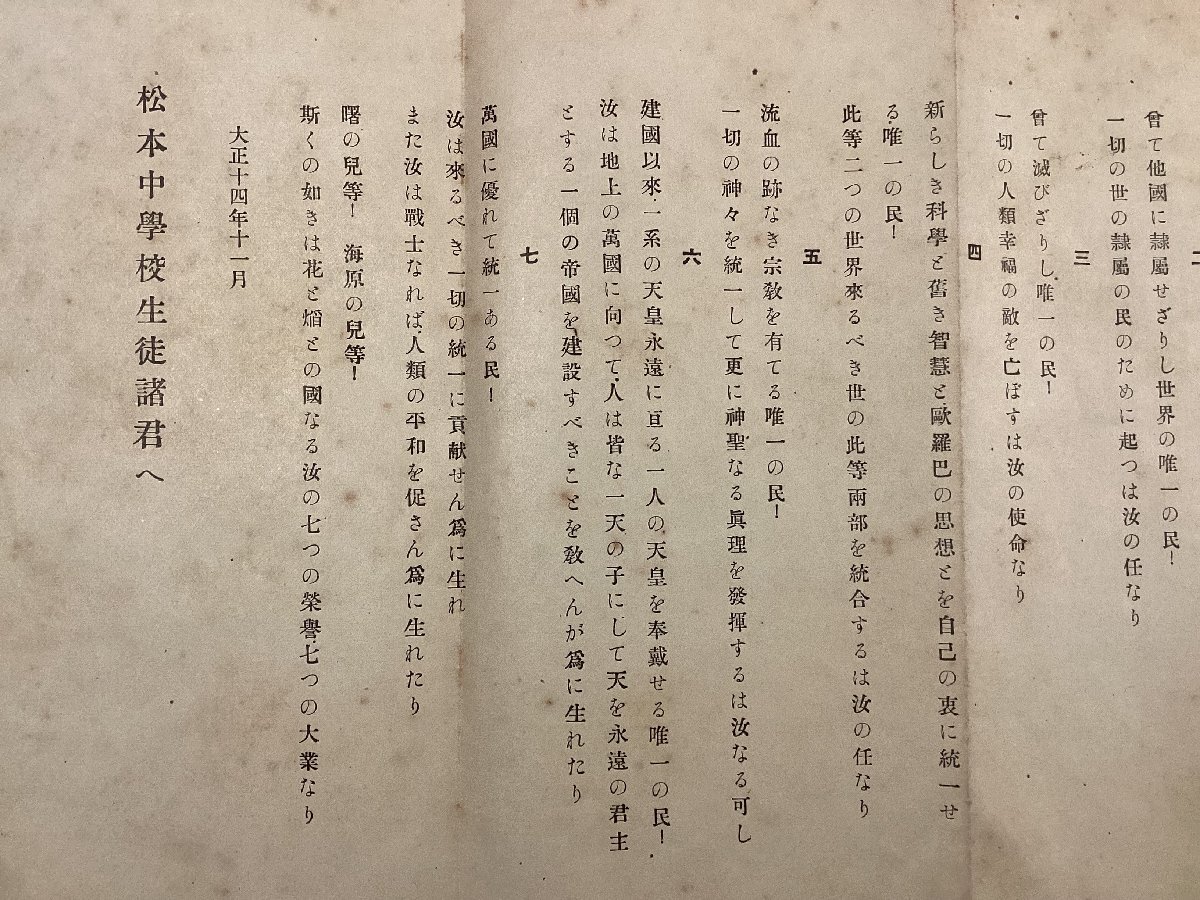 二
曾て他國に隷屬せざりし世界の唯一の民!
一切の世の隷屬の民のために起つは汝の任なり
三
曾て滅びざりし唯一の民!
一切の人類幸福の敵を亡ぼすは汝の使命なり
四
新らしき科學と舊き智慧と歐羅巴の思想とを自己の衷に統一せ
る唯一の民!
此等二つの世界來るべき世の此等兩部を統合するは汝の任なり
五
流血の跡なき宗敎を有てる唯一の民!
一切の神々を統一して更に神聖なる眞理を發揮するは汝なる可し
六
建國以來一系の天皇永遠に亘る一人の天皇を奉戴せる唯一の民!
汝は地上の萬國に向つて人は皆な一天の子にして天を永遠の君主
とする一個の帝國を建設すべきことを敎へんが爲に生れたり
七
萬國に優れて統一ある民!
汝は來るべき一切の統一に貢献せん爲に生れ
また汝は戰士なれば人類の平和を促さん爲に生れたり
曙の兒等! 海原の兒等!
斯くの如きは花と焔との國なる汝の七つの榮譽七つの大業なり
大正十四年十一月
松本中學校生徒諸君へ